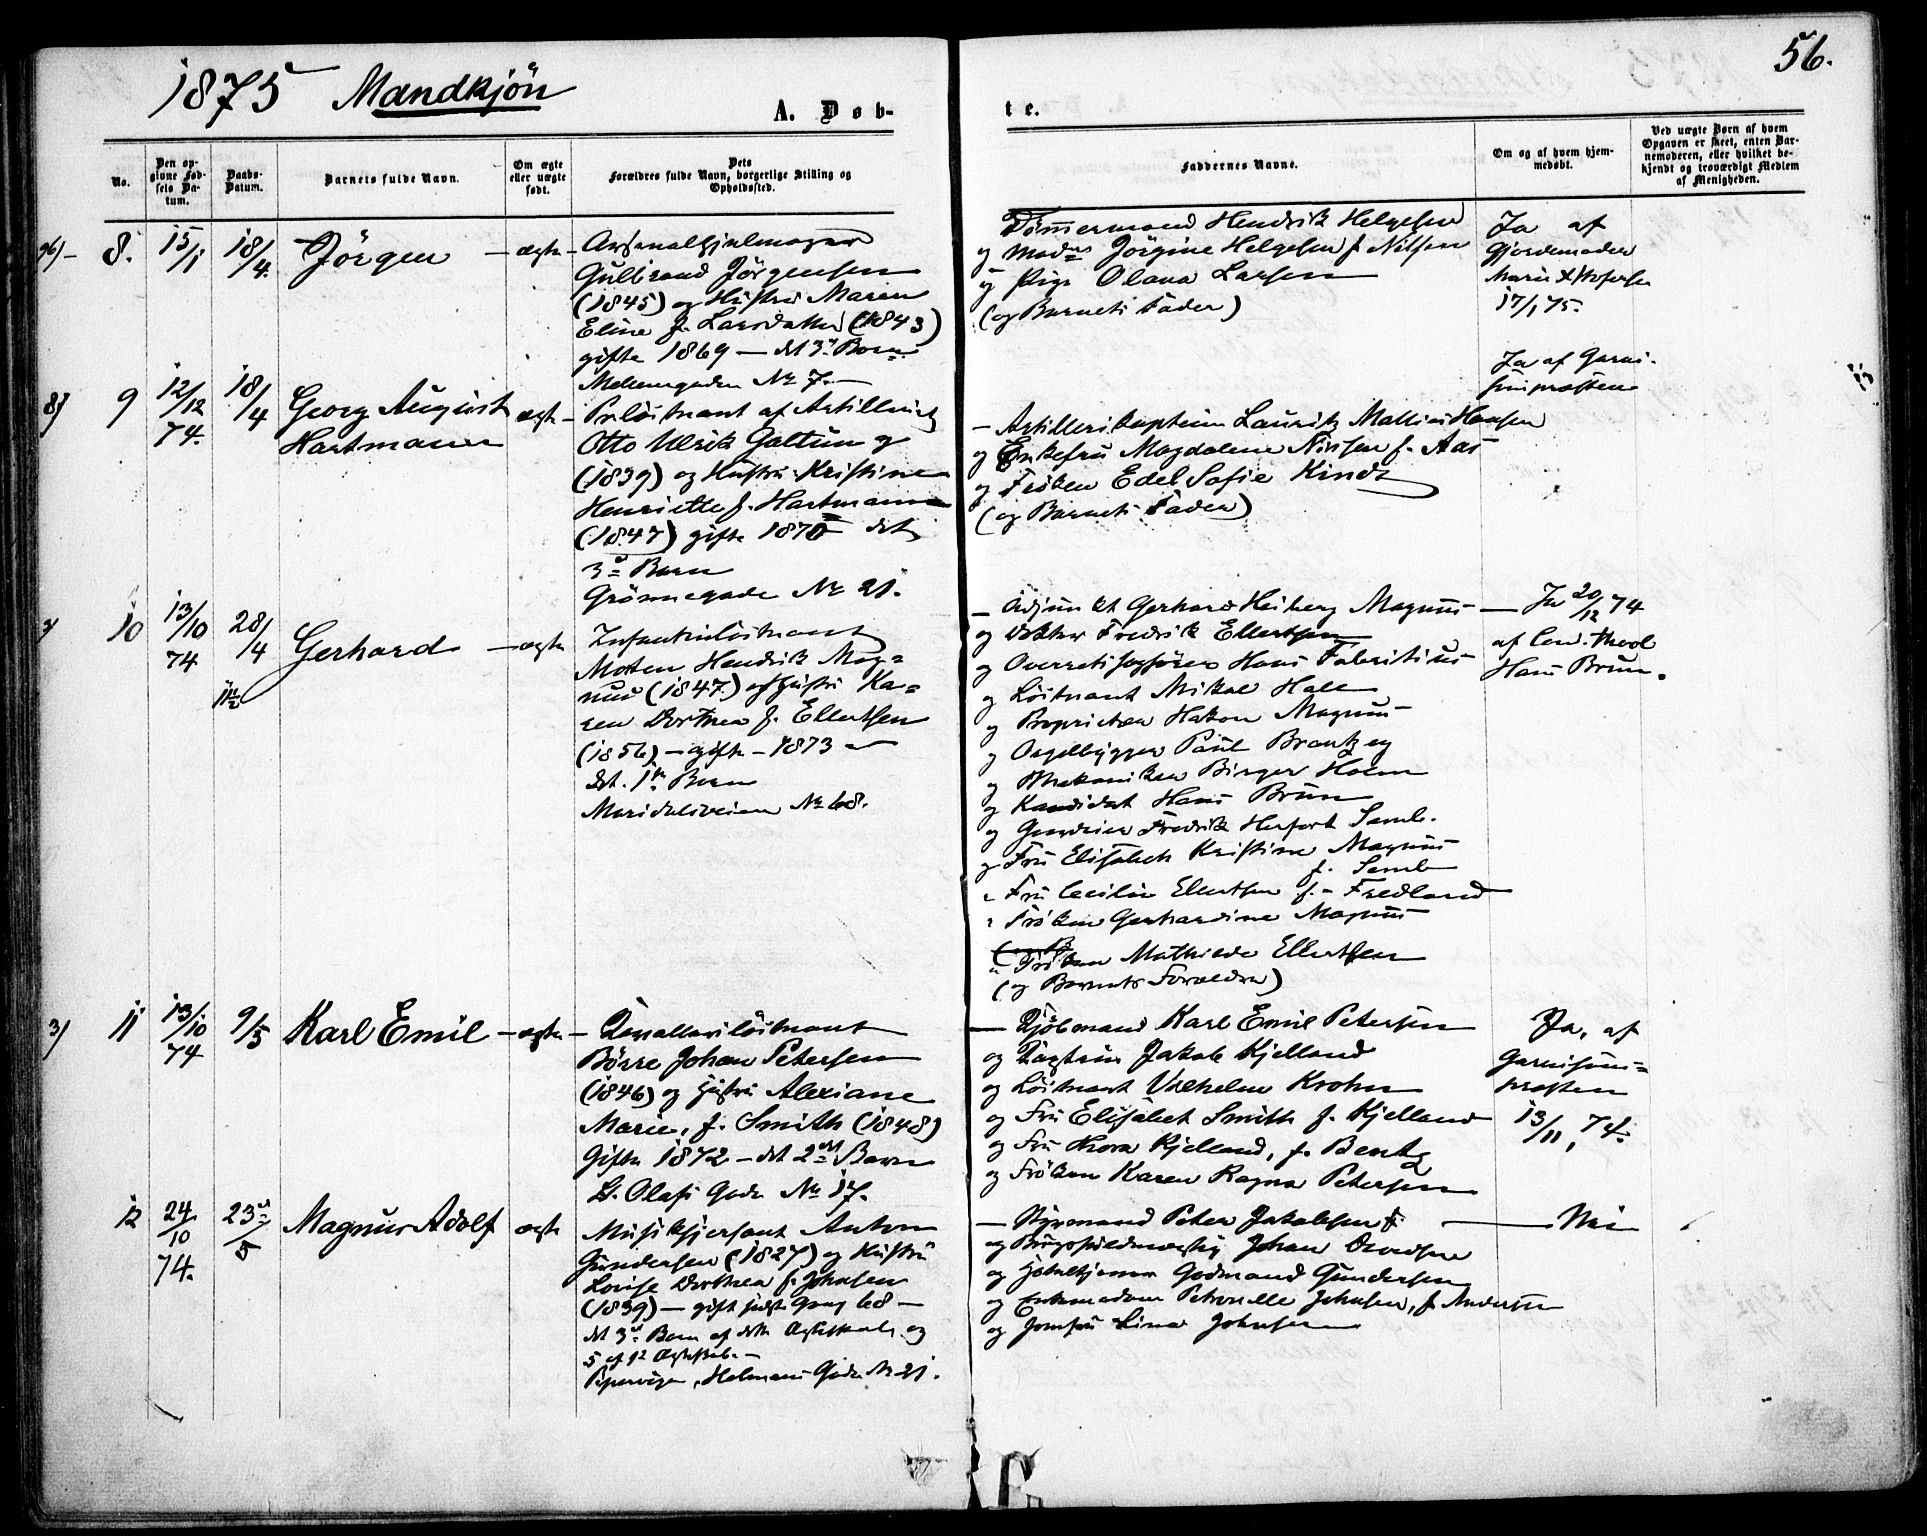 1875 Mandkjön
A. Døb-
te.
56.
No.
Den op-
givne Fød-
sels Da-
tum.
Daabs-
Datum.
Barnets fulde Navn.
Om ægte
eller uægte
født.
Dets
Forældres fulde Navn, borgerlige Stilling og
Opholdssted.
Faddernes Navne.
Om og af hvem hjem-
medøbt.
Ved uægte Børn af hvem
Opgaven er skeet, enten Bar-
nemoderen, eller hvilket be-
kjendt og troværdigt Medlem
af Menigheden.
8. 15/1 18/4. Jörgen – ægte –
Gulbrand Jörgensen
(1845) og Hustru Maren
Eline f. Larsdatter (1843)
gifte 1869 – det 3die Barn
No 7. –
Tömmermand Hendrik Helgesen
og Mads Jörgine Helgesen f. Nilsen
og Pige Olana Larsen
(og Barnets Fader)
Ja af
Gjordemoder
Marie
17/1 75.
9 12/12 74. 18/4 Georg August
Hartmann
ægte –
Prlöitnant af Artilleriet
Otto Ulrik
(1839) og Hustru Kristine
Henriette f. Hartmann
(1847) gifte 1870 det
3die Barn
Grönnegade No 21.
– Artillerikaptein Lauritz Hansen
og Enkefru Magdalene Nilsen f. Aas
og Fröken Edel Sofie Kindt
(og Barnets Fader)
Ja af Garni-
sonspræsten
10 13/10 74 28/4 Gerhard – ægte
Infanterilöitnant
Morten Hendrik Mag=
nus (1847) og Hustru Ka=
ren Dorthea f. Ellertsen
(1856) – gifte – 1873 –
det. 1ste Barn
Maridalsveien No 68.
– Adjunkt Gerhard Heiberg Magnus
og Doktor Fredrik Ellertsen
og Overretssagförer Hans Fabritius
og Löitnant Mikal Hall
og Proprietær Hakon Magnus
og Orgelbygger Paul Brantzeg
og Mekaniker Birger Holm
og Kandidat Hans Brun
og Fredrik Herfort Semb.
og Fru Elisabeth Kristine Magnus
f. Semb
Fru Cecilie Ellertsen f. – Fredland
Fröken Gerhardine Magnus
Fröken Mathilde Ellertsen
(og Barnets Forældre)
– Ja 20/12 74
af Cand. theol
Hans Brun.
3) 11 13/10 74 9/5 Karl Emil – ægte –
Kavallerilöitnant
Börre Johan Petersen
(1846) og Hustru Alexiane
Marie, f. Smith (1848)
Gifte 1872 – det 2det Barn
St. Olafs Gade No 17.
– Kjöbmand Karl Emil Petersen
og Kaptein Jakob Kjelland
og Löitnant Vilhelm Krohn
og Fru Elisabet Smith f. Kjelland
og Fru Kjelland, f. Bentz
og Fröken Karen Ragna Petersen
Ja, af
Garnisons=
præsten
13/11, 74.
12 24/10 74. 23/5 Magnus Adolf ægte
Musiksjersant Anton
Gundersen (1827) og Hustru
Louise Dorthea f. Johnsen
(1839) – gift sidste Gang 68 –
det 3die Barn af dette Ægteskab og
5 af 1ste Ægtesk. –
Pipervigen, Holmens Gade No 21.
– Styrmand Peter Jakobsen
og Johan
og Godmand Gundersen
og Enkemadam Petronelle Johnsen, f. Andersen
og Jomfru Lina Johnsen
– Nei